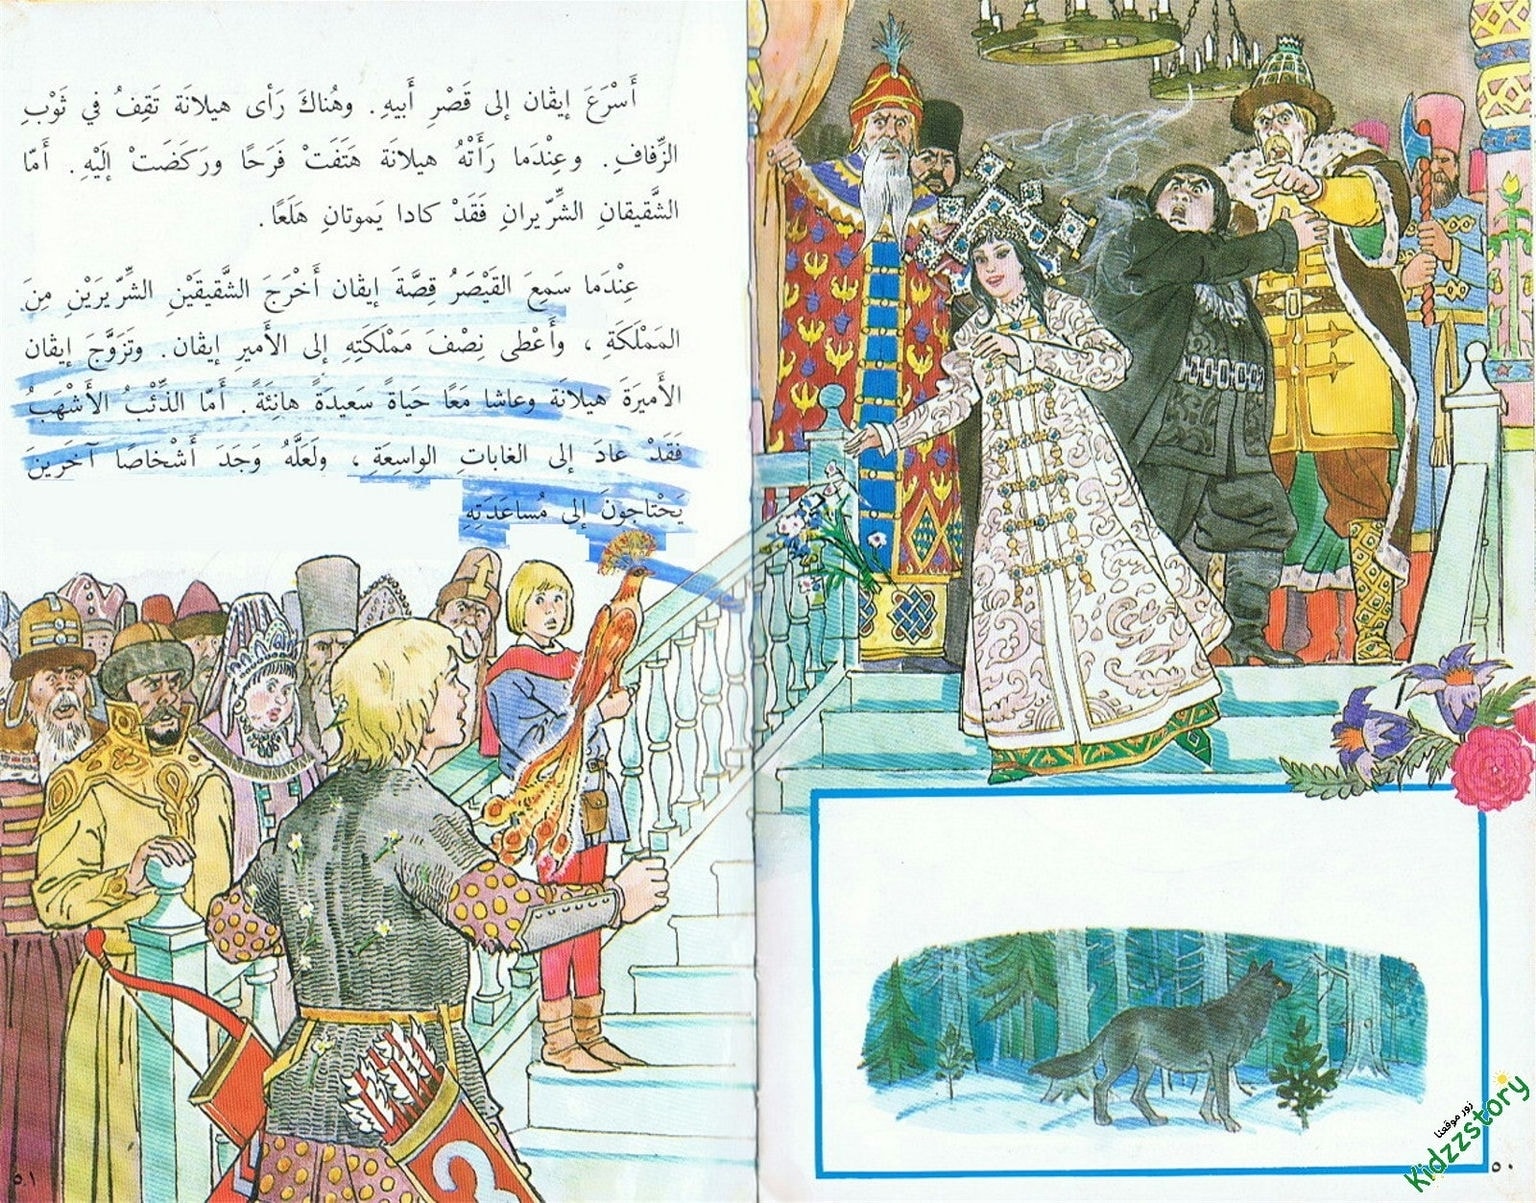 أَسْرَعَ إيڤان إلى قَصْرِ أَبيهِ. وهُناكَ رَأى هيلانَة تَقِفُ في ثَوْبِ
الزِّفافِ. وعِنْدَما رَأَتْهُ هيلانَة هَتَفَتْ فَرَحًا ورَكَضَتْ إلَيْهِ. أَمّا
الشَّقيقانِ الشِّرّيرانِ فَقَدْ كادا يَموتانِ هَلَعًا.
عِنْدَما سَمِعَ القَيْصَرُ قِصَّةَ إيڤان أَخْرَجَ الشَّقيقَيْنِ الشِّرّيرَيْنِ مِنَ
المَمْلَكَةِ ، وأَعْطى نِصْفَ مَمْلَكَتِهِ إلى الأَميرِ إيڤان. وتَزَوَّجَ إيڤان
الأَميرَةَ هيلانَة وعاشا مَعًا حَياةً سَعيدَةً هانِئَةً. أَمّا الذِّئْبُ الأَشْهَبُ
فَقَدْ عادَ إلى الغاباتِ الواسِعَةِ ، ولَعَلَّهُ وَجَدَ أَشْخاصًا آخَرينَ
يَحْتاجونَ إلى مُساعَدَتِهِ
زور موقعنا
Kidzzstory
٥٠
٥١